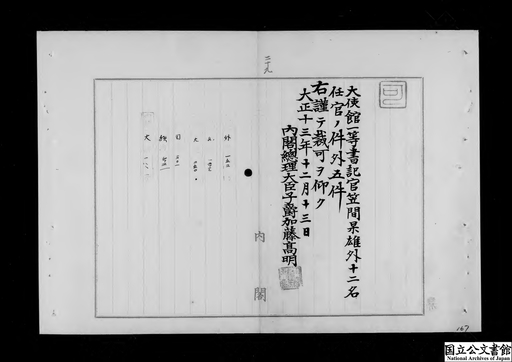 二十九
大使館一等書記官笠間杲雄外十二名
任官ノ件外五件
右謹テ裁可ヲ仰ク
大正十三年十二月十三日
内閣總理大臣子爵加藤高明
内閣
167
国立公文書館
National Archives of Japan